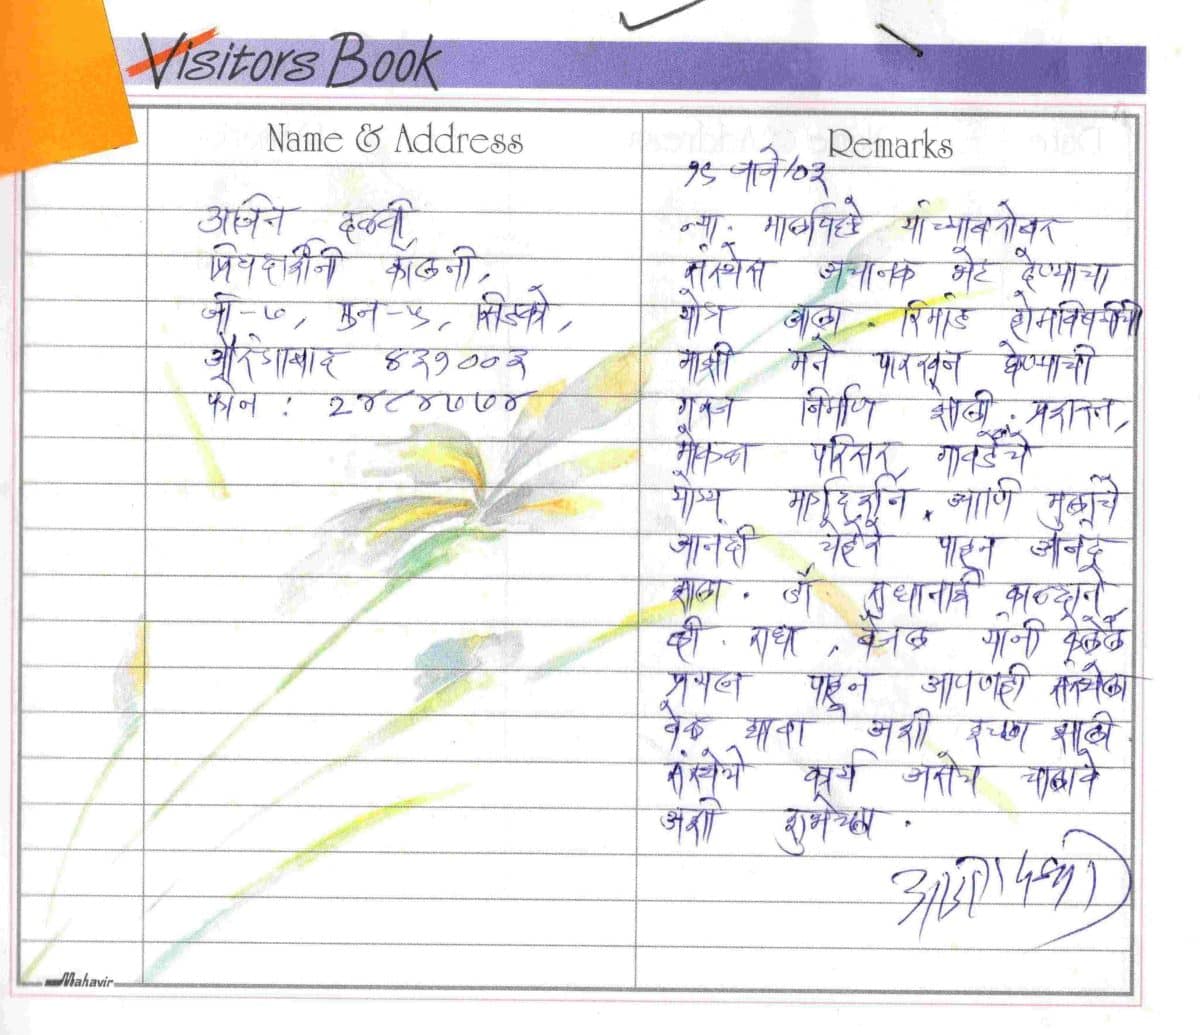 Visitors Book
Name & Address
अजित दळवी,
प्रियदर्शिनी कॉलनी,
जी-७, एन-५, सिडको,
औरंगाबाद ४३१००३
फोन : २४८४७७४
Remarks
१९ जाने/०३
न्या. यांच्याबरोबर
संस्थेस अचानक भेट देण्याचा
योग आला. रिमांड होमविषयीची
माझी मते पारखून घेण्याची
गरज निर्माण झाली. प्रशस्त,
मोकळा परिसर, गावडेंचे
योग्य मार्गदर्शन, आणि मुलांचे
आनंदी चेहेरे पाहून आनंद
झाला. डॉ. सुधाताई काळदाते
व्ही. राधा, बैजल यांनी केलेले
प्रयत्न पाहून आपणही संस्थेला
वेळ द्यावा अशी इच्छा झाली
संस्थेचे कार्य असेच चालावे
अशी शुभेच्छा.
Mahavir